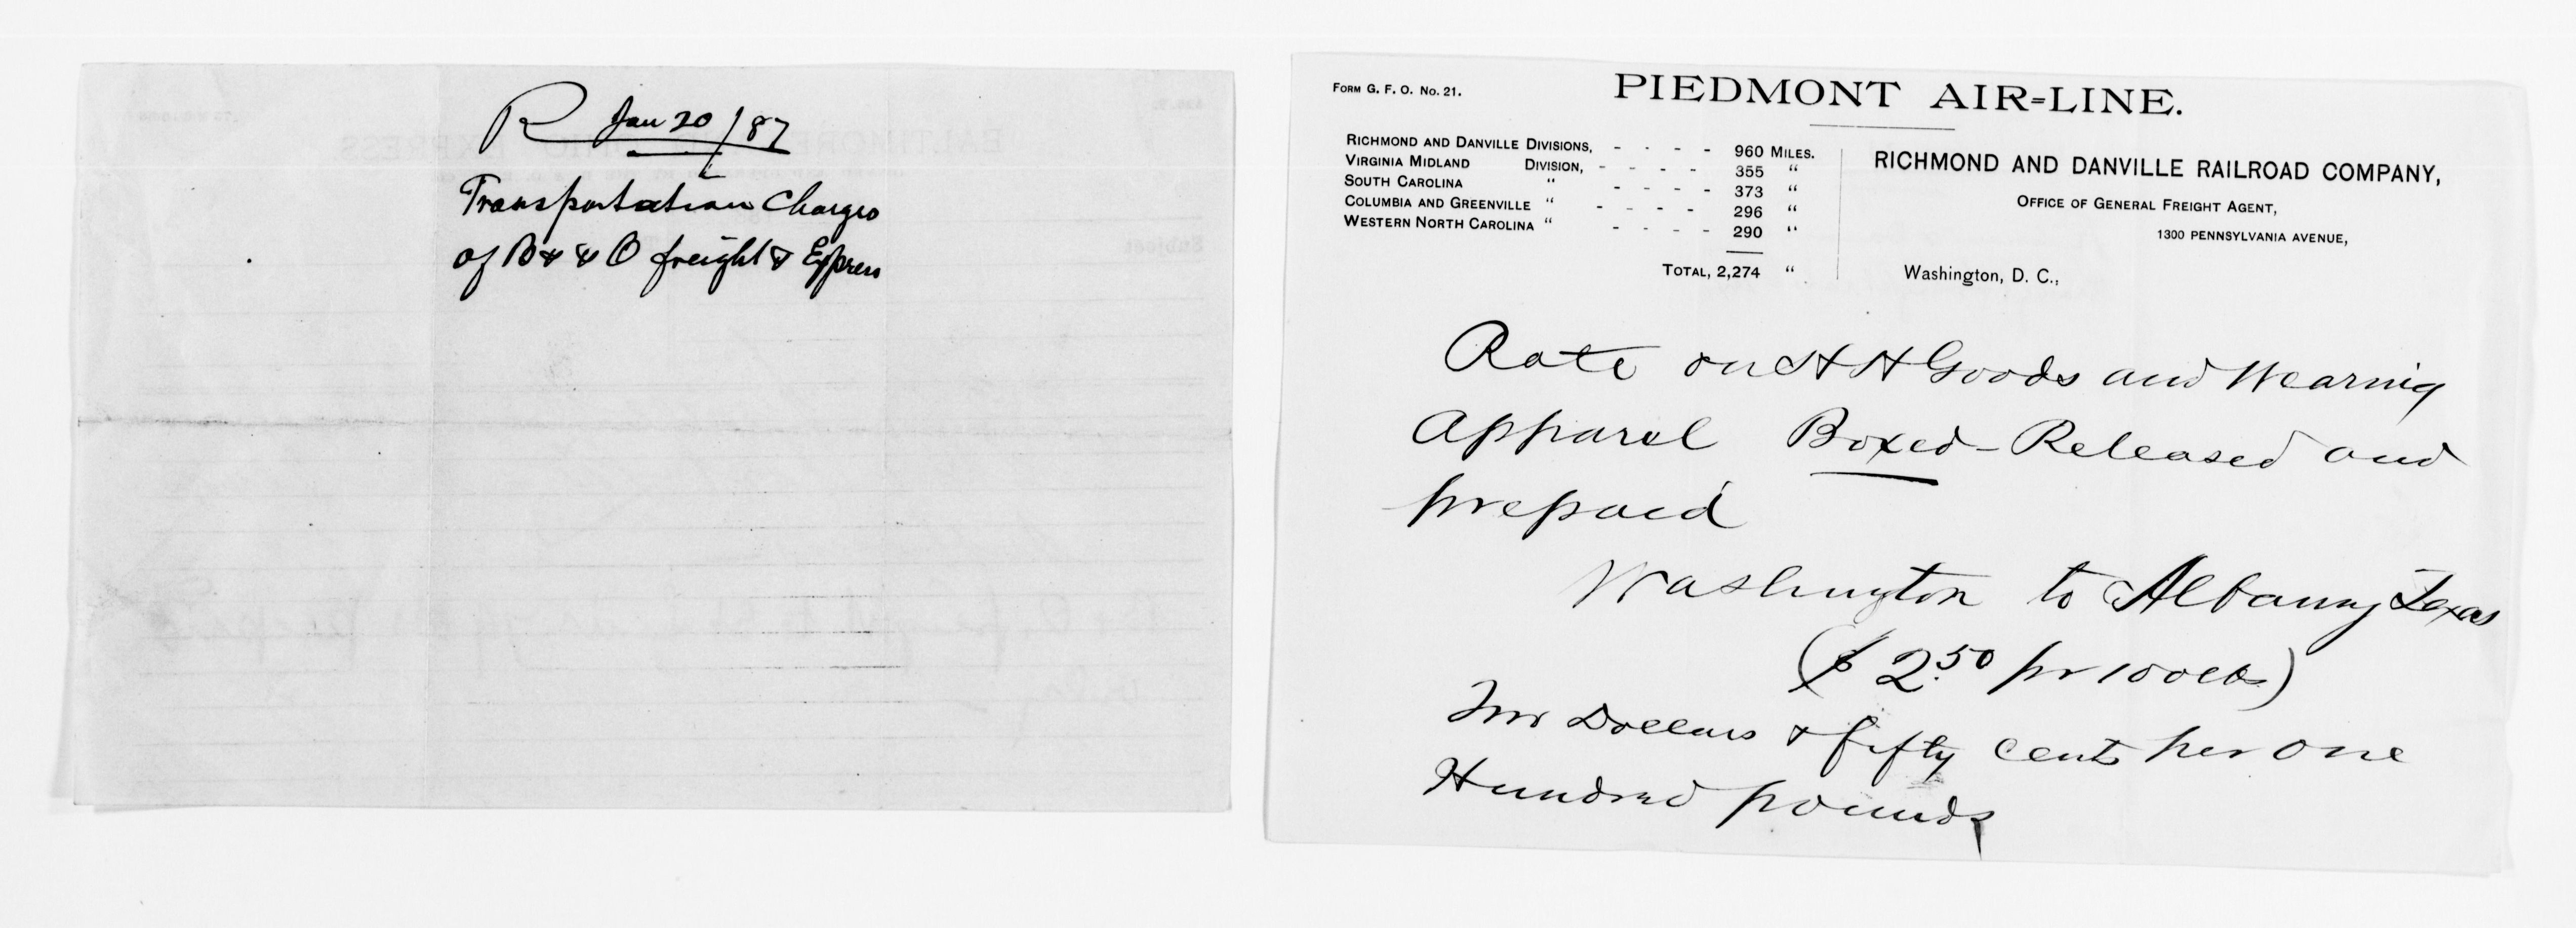 R Jan 20/87
Transportation Charges
of B & O freight & Express
FORM G. F. O. No. 21.
PIEDMONT AIR-LINE.
RICHMOND AND DANVILLE DIVISIONS, - - - - 960 MILES.
VIRGINIA MIDLAND DIVISION, - - - - 355 "
SOUTH CAROLINA " - - - - 373 "
COLUMBIA AND GREENVILLE " - - - - 296 "
WESTERN NORTH CAROLINA " - - - - 290 "
TOTAL, 2,274 "
RICHMOND AND DANVILLE RAILROAD COMPANY,
OFFICE OF GENERAL FREIGHT AGENT,
1300 PENNSYLVANIA AVENUE,
Washington, D. C.,
Rate on H H Goods and Wearing
Apparel Boxed - Released and
prepaid
Washington to Albany Texas
($ 2.50 pr 100 lbs)
Two Dollars & fifty cents per one
Hundred pounds